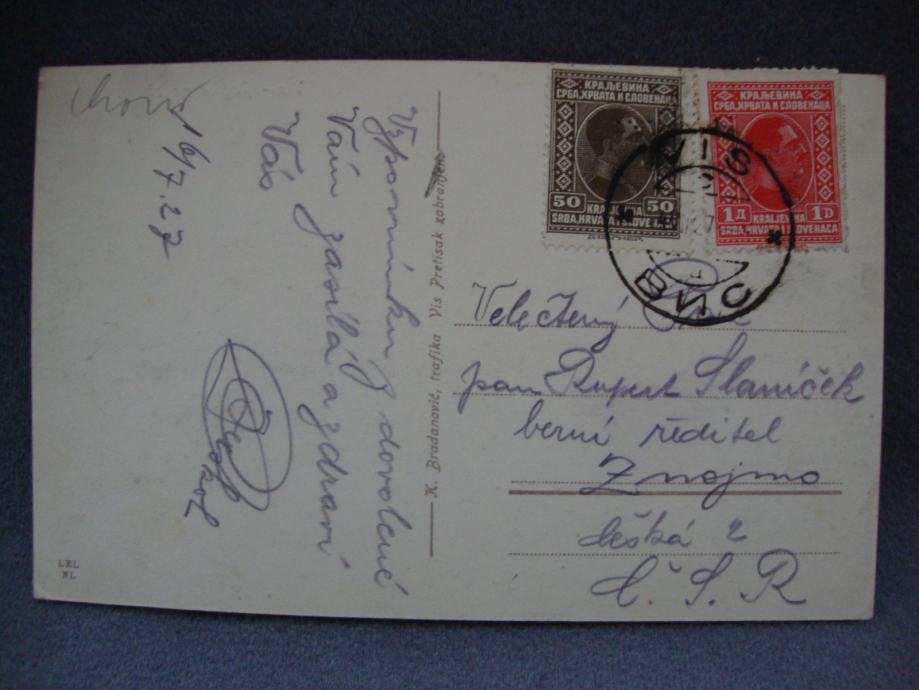 16/7.27
Vzpomínku z dovolené
Vám zasílá a zdraví
Vás
K. Bradanović, trafika Vis Pretisak zabranjen.
LEL
NL
КРАЉЕВИНА
СРБА, ХРВАТА И СЛОВЕНАЦА
50 50
KRALJEVINA
SRBA, HRVATA I SLOVENACA
КРАЉЕВИНА
СРБА, ХРВАТА И СЛОВЕНАЦА
1Д KRALJEVINA 1D
SRBA, HRVATA I SLOVENACA
VIS
ВИС
Velectený
pan Rupert Slaníček
berní ředitel
Znojmo
Češká 2
Č. S. R